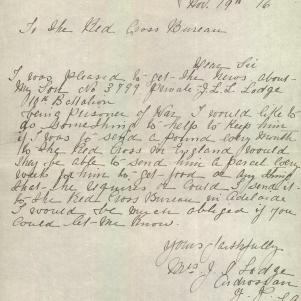 Nov 19th 16
To The Red Cross Bureau
Dear Sir
I was pleased to get the news about
My Son No 3799 Private J.L.L. Lodge
Battalion
being Prisoner of War I would like to
do something to help to keep him
if I was to send a pound every month
to the Red Cross in England would
they be able to send him a parcel every
week for him to get food or any thing
that he requires or could I send it
to the Red Cross Bureau in Adelaide
I would be much obliged if you
could let me know.
Yours faithfully
Mrs J. Lodge
Ardrossan